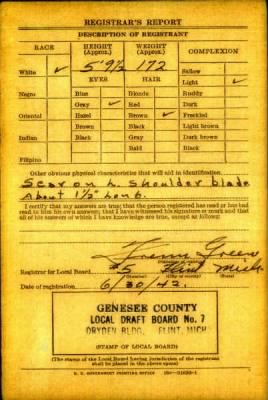 REGISTRAR'S REPORT
DESCRIPTION OF REGISTRANT
RACE HEIGHT (Approx.) WEIGHT (Approx.) COMPLEXION
White ✓ 5' 9½ 172 Sallow
EYES HAIR Light ✓
Negro Blue Blonde Ruddy
Gray ✓ Red Dark
Oriental Hazel Brown ✓ Freckled
Brown Black Light brown
Indian Black Gray Dark brown
Bald Black
Filipino
Other obvious physical characteristics that will aid in identification
Scar on L. Shoulder blade
About 1½" Long.
I certify that my answers are true; that the person registered has read or has had
read to him his own answers; that I have witnessed his signature or mark and that
all of his answers of which I have knowledge are true, except as follows:
Green
Registrar for Local Board #5 Flint Mich.
(Number) (City or county) (State)
Date of registration 6/30/42.
GENESEE COUNTY
LOCAL DRAFT BOARD No. 7
DRYDEN BLDG. FLINT, MICH
(STAMP OF LOCAL BOARD)
(The stamp of the Local Board having jurisdiction of the registrant
shall be placed in the above space)
U. S. GOVERNMENT PRINTING OFFICE